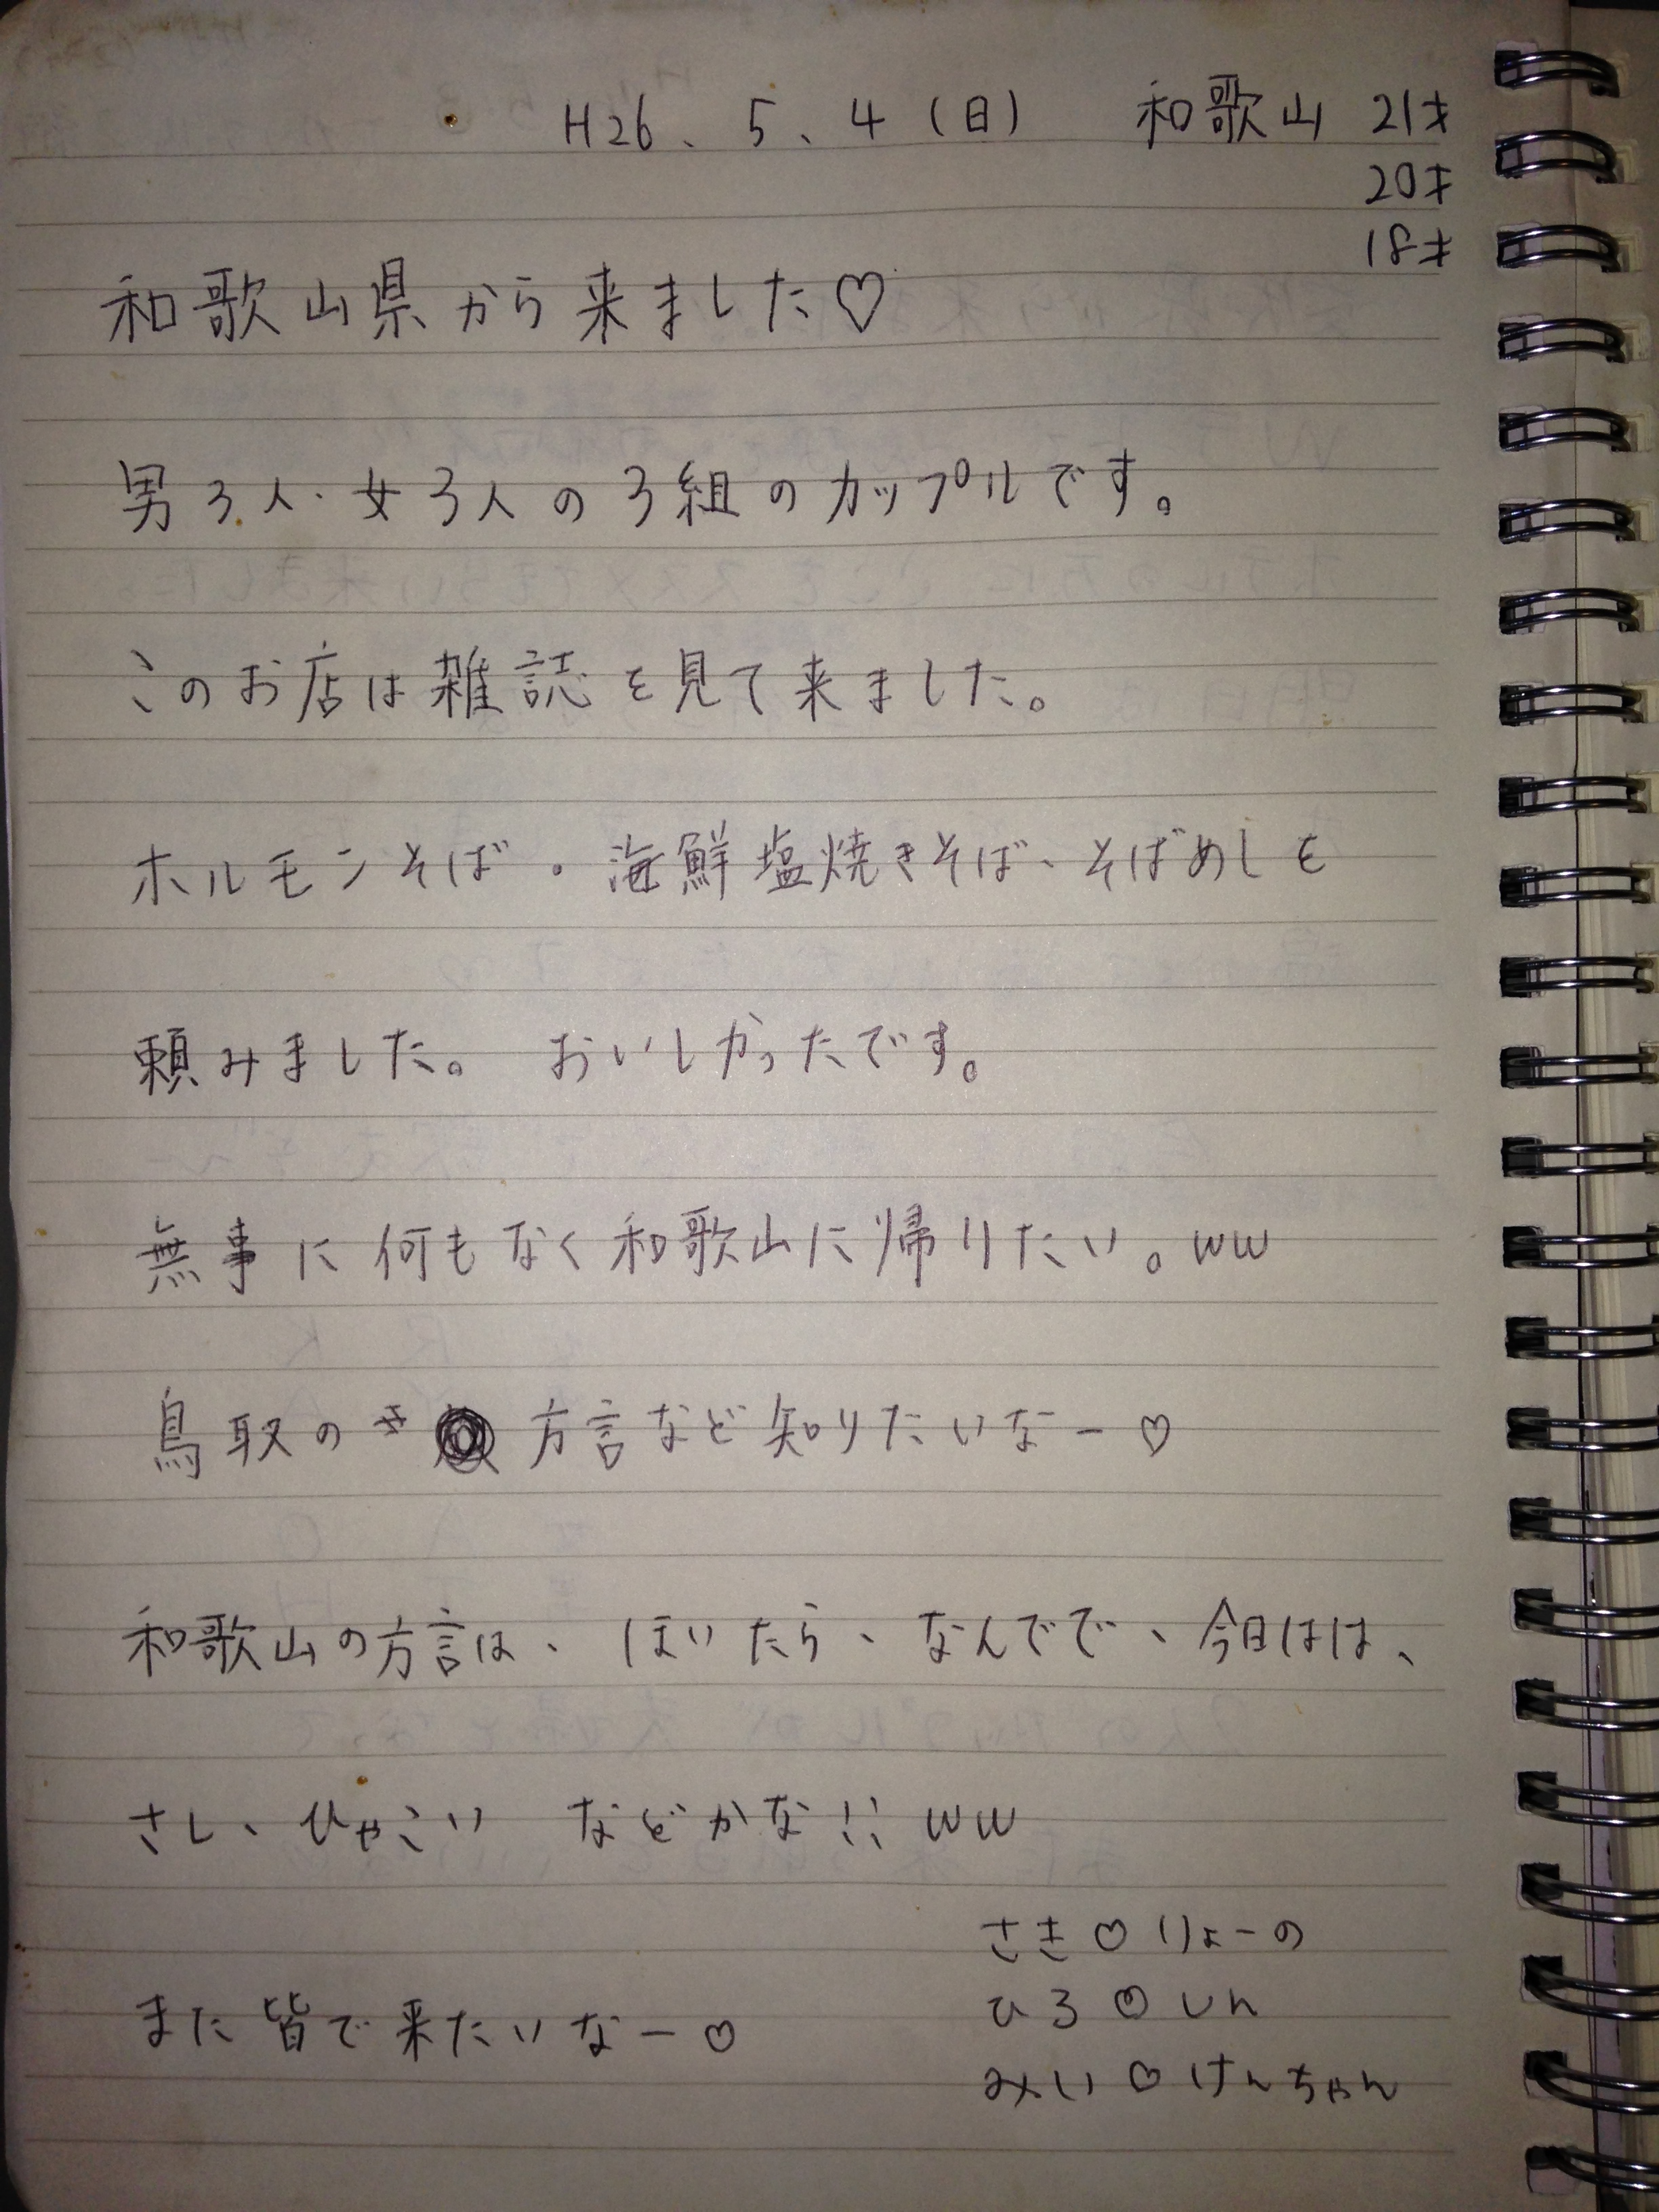 H26、5、4（日） 和歌山 21才
20才
18才
和歌山県から来ました♡
男3人・女3人の3組のカップルです。
このお店は雑誌を見て来ました。
ホルモンそば。海鮮塩焼きそば、そばめしを
頼みました。 おいしかったです。
無事に何もなく和歌山に帰りたい。ww
鳥取のき 方言など知りたいなー♡
和歌山の方言は、ほいたら、なんでで、今日はは、
さし、ひゃこい などかな!! ww
また皆で来たいなー♡
さき♡りょーの
ひろ♡しん
みい♡けんちゃん